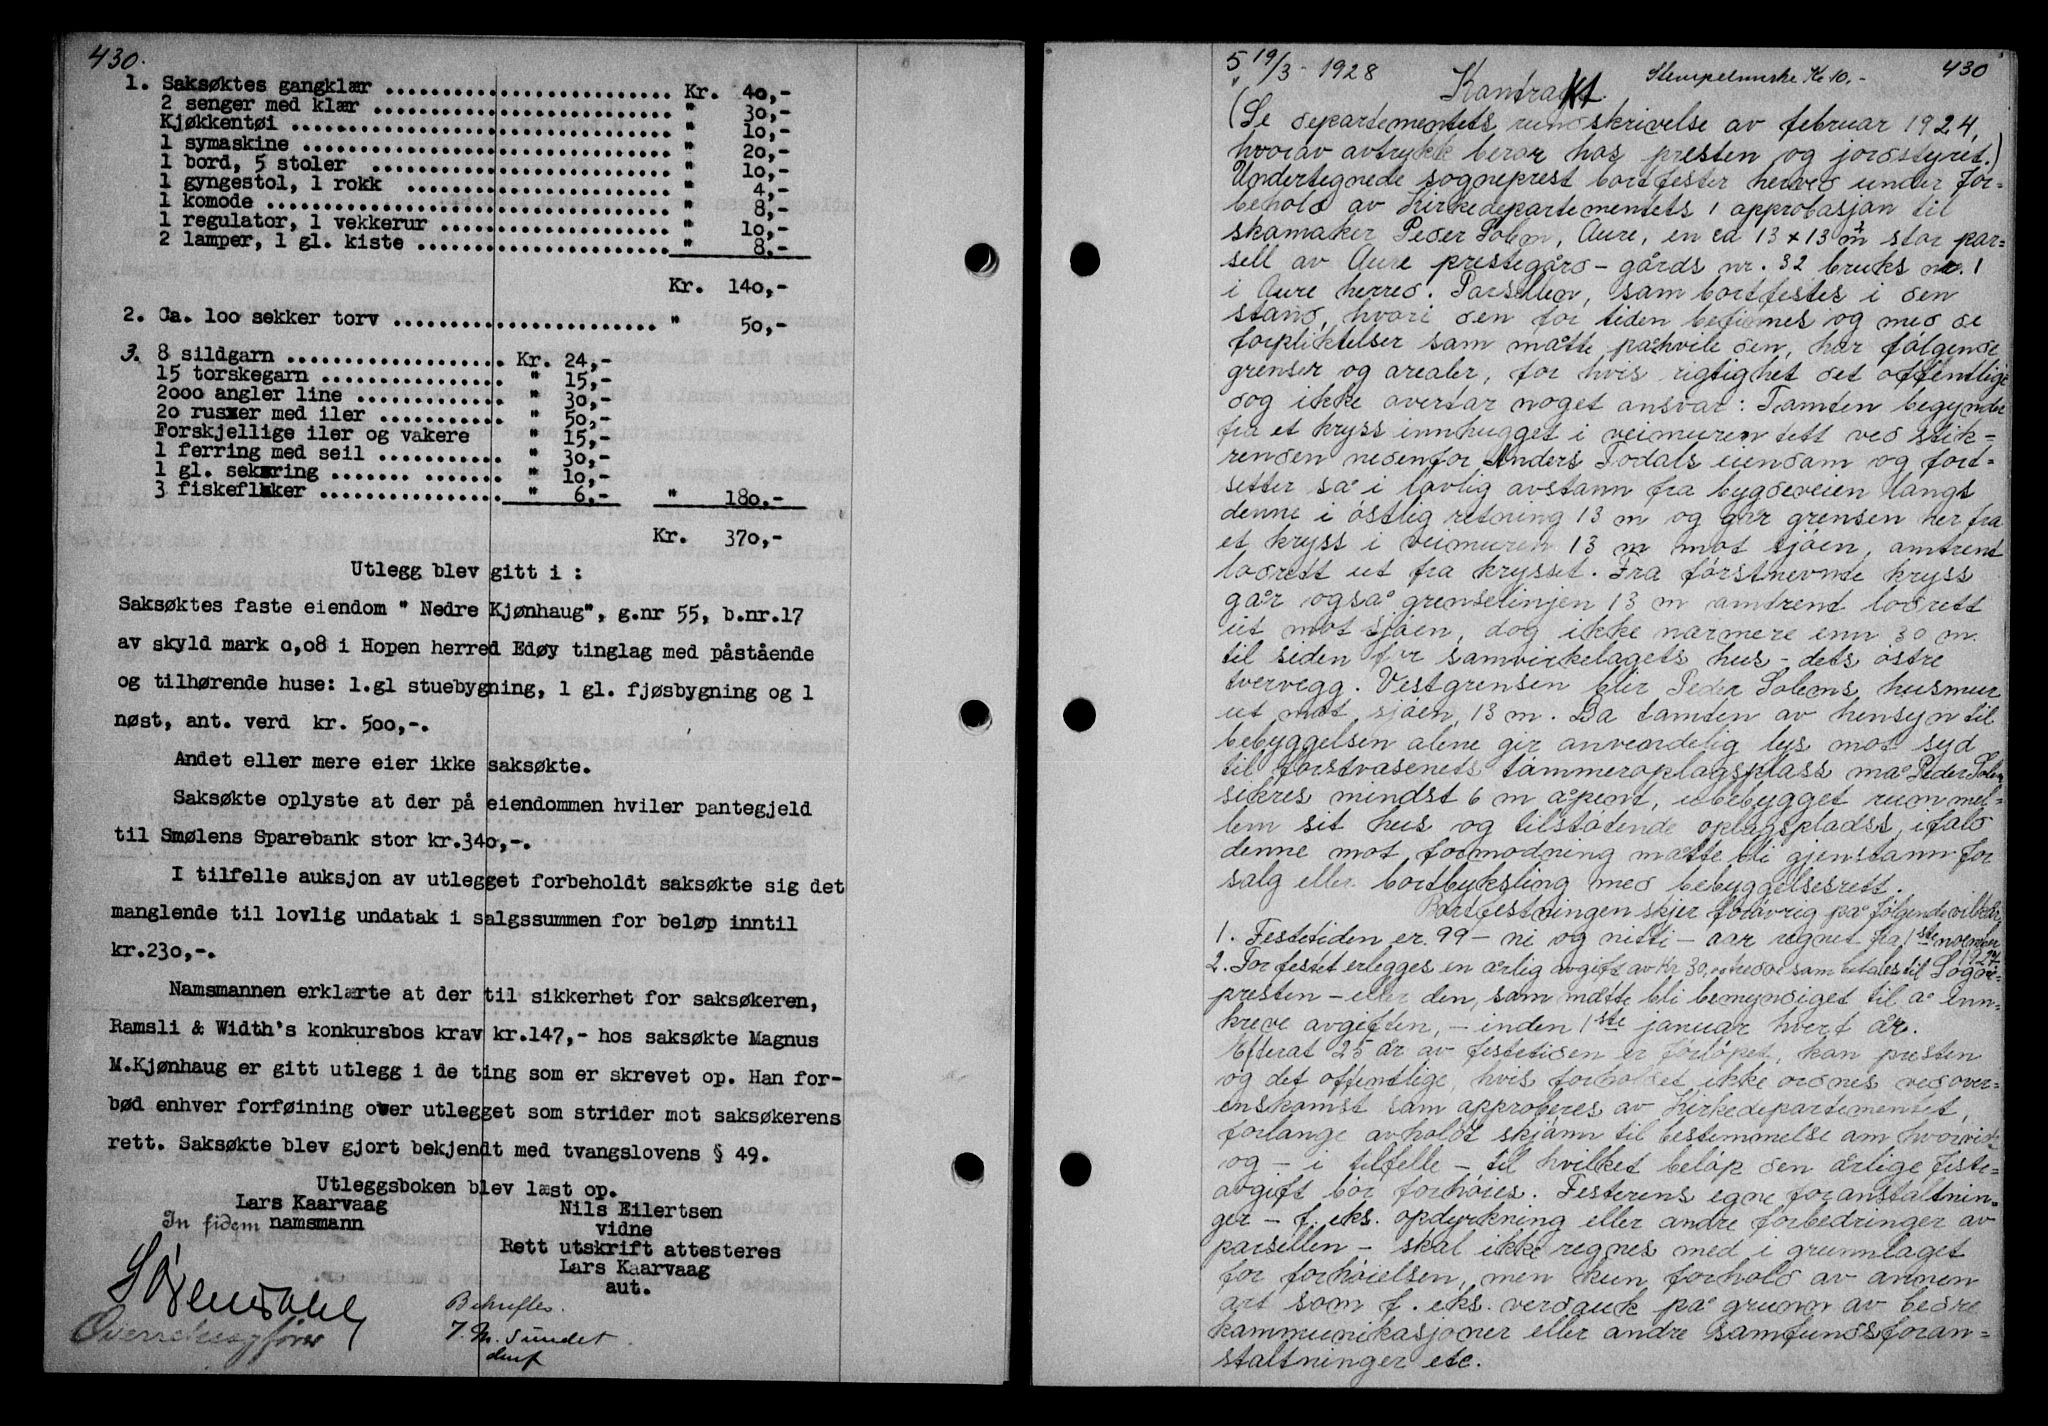 430.
1. Saksøktes gangklær ........ Kr. 40,-
2 senger med klær ........ " 30,-
Kjøkkentøi ........ " 10,-
1 symaskine ........ " 20,-
1 bord, 5 stoler ........ " 10,-
1 gyngestol, 1 rokk ........ " 4,-
1 komode ........ " 8,-
1 regulator, 1 vekkerur ........ " 10,-
2 lamper, 1 gl. kiste ........ " 8,-
Kr. 140,-
2. Ca. 100 sekker torv ........ " 50,-
3. 8 sildgarn ........ Kr. 24,-
15 torskegarn ........ " 15,-
2000 angler line ........ " 30,-
20 rusxer med iler ........ " 50,-
Forskjellige iler og vakere " 15,-
1 ferring med seil ........ " 30,-
1 gl. sekæring ........ " 10,-
3 fiskeflaker ........ " 6,- " 180,-
Kr. 370,-
Utlegg blev gitt i :
Saksøktes faste eiendom " Nedre Kjønhaug", g.nr 55, b.nr.17
av skyld mark 0,08 i Hopen herred Edøy tinglag med påstående
og tilhørende huse: 1.gl stuebygning, 1 gl. fjøsbygning og 1
nøst, ant. verd kr. 500,-.
Andet eller mere eier ikke saksøkte.
Saksøkte oplyste at der på eiendommen hviler pantegjeld
til Smølens Sparebank stor kr.340,-.
I tilfelle auksjon av utlegget forbeholdt saksøkte sig det
manglende til lovlig undatak i salgssummen for beløp inntil
kr.230,-.
Namsmannen erklærte at der til sikkerhet for saksøkeren,
Ramsli & Width's konkursbos krav kr.147,- hos saksøkte Magnus
M.Kjønhaug er gitt utlegg i de ting som er skrevet op. Han for-
bød enhver forføining over utlegget som strider mot saksøkerens
rett. Saksøkte blev gjort bekjendt med tvangslovens § 49.
Utleggsboken blev læst op.
Lars Kaarvaag
namsmann
Nils Eilertsen
vidne
Rett utskrift attesteres
Lars Kaarvaag
aut.
In fidem
Bekreftes.
Sundet
5 19/3 - 1928 Stempelmerke Kr 10.- 430
Kontrakt.
(Se departementets rundskrivelse av februar 1924,
hvorav avtrykk beror hos presten og jordstyret.)
Undertegnede sogneprest bortfester herved under for-
behold av Kirkedepartementets approbasjon til
skomaker Peder Solem, Aure, en ca 13 x 13 m² stor par-
sell av Aure prestegård - gårds nr. 32 bruks nr. 1
i Aure herred. Parsellen, som bortfestes i den
stand, hvori den for tiden befinnes og med de
forpliktelser som måtte påhvile den, har følgende
grenser og arealer, for hvis rigtighet det offentlige
dog ikke overtar noget ansvar: Tomten begynder
fra et kryss innhugget i veimuren tett ved stik-
renden nedenfor Anders Todals eiendom og fort-
setter så i lovlig avstann fra bygdeveien langs
denne i østlig retning 13 m og går grensen her fra
et kryss i veimuren 13 m mot sjøen, omtrent
lodrett ut fra krysset. Fra førstnevnte kryss
går også grenselinjen 13 m omtrent lodrett
ut mot sjøen, dog ikke nærmere enn 30 m
til siden for samvirkelagets hus - dets østre
tvervegg. Vestgrensen blir Peder Solems husmur
ut mot sjøen, 13 m. Da tomten av hensyn til
bebyggelsen alene gir anvendelig lys mot syd
til forstvæsenets tømmeroplagsplass må Peder Solem
sikres mindst 6 m åpent, ubebygget rum mel-
lem sit hus og tilstøtende oplagspladss, ifald
denne mot formodning måtte bli gjenstann for
salg eller bortbyksling med bebyggelsesrett.
Bortfestningen skjer forøvrig på følgende vilkår:
1. Festetiden er 99 - ni og nitti - aar regnet fra 1ste november
2. For festet erlegges en årlig avgift av Kr 30, som betales til Sogne-
presten - eller den, som måtte bli bemyndiget til å inn-
kreve avgiften, - inden 1ste januar hvert år.
Efterat 25 år av festetiden er forløpet, kan presten
og det offentlige, hvis forholdet ikke ordnes ved over-
enskomst som approberes av Kirkedepartementet,
forlange avholdt skjønn til bestemmelse om hvorvidt
og - i tilfelle - til hvilket beløp den årlige feste-
avgift bør forhøies. Festerens egne foranstaltnin-
ger - f. eks. opdyrkning eller andre forbedringer av
parsellen - skal ikke regnes med i grunnlaget
for forhøielsen, men kun forhold av annen
art som f. eks. verdauk på grunn av bedre
kommunikasjoner eller andre samfundsforan-
staltninger etc.